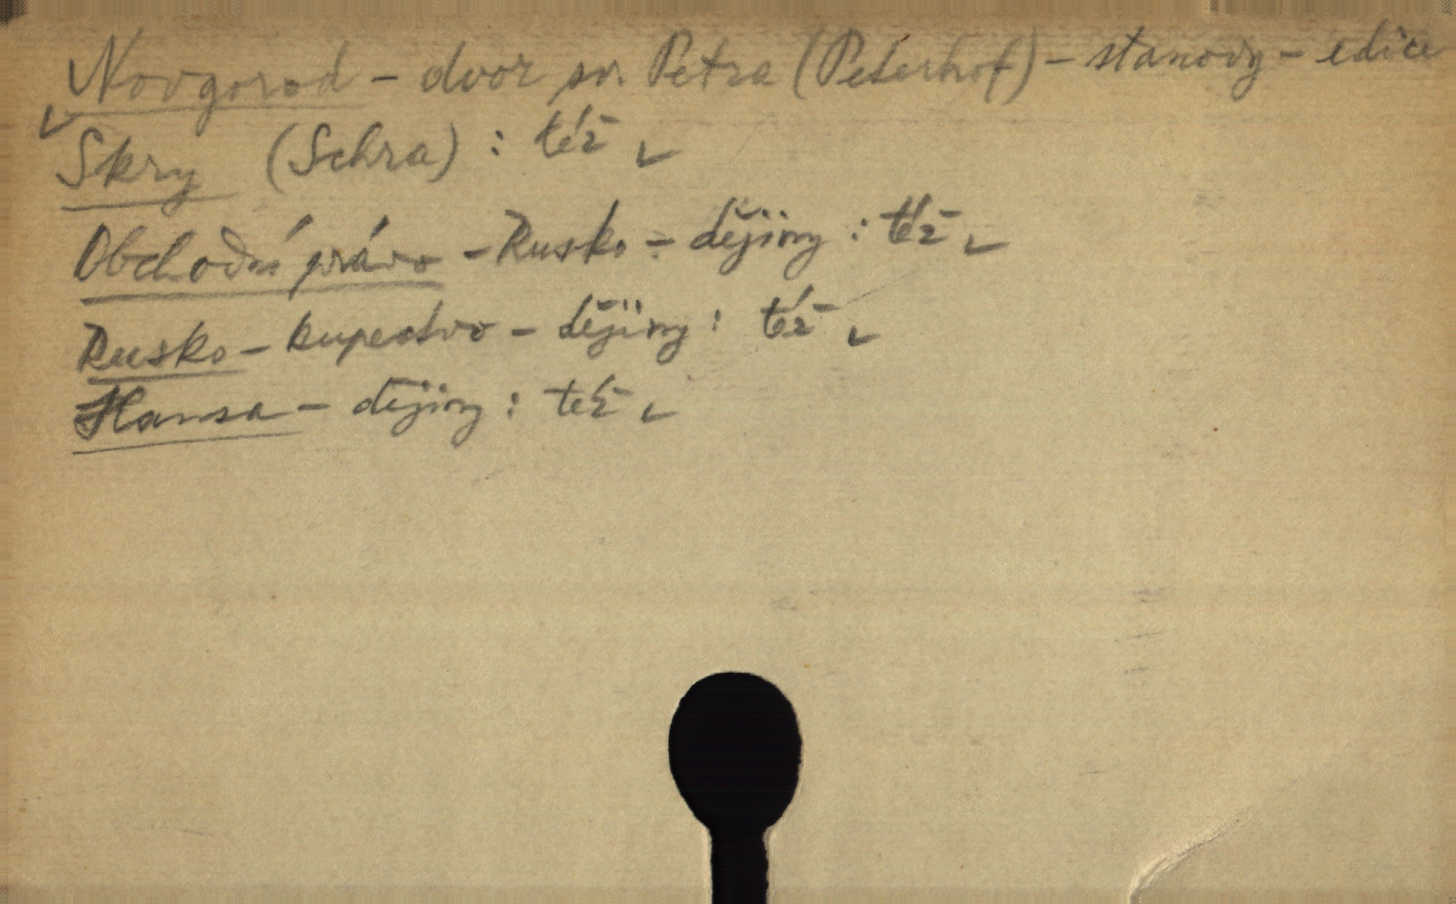 Novgorod - dvor sv. Petra (Peterhof) - stanovy - edice
✓
Skry (Schra) : též ✓
Obchodní právo - Rusko - dějiny : též ✓
Rusko - kupectvo - dějiny : též ✓
Hansa - dějiny : též ✓